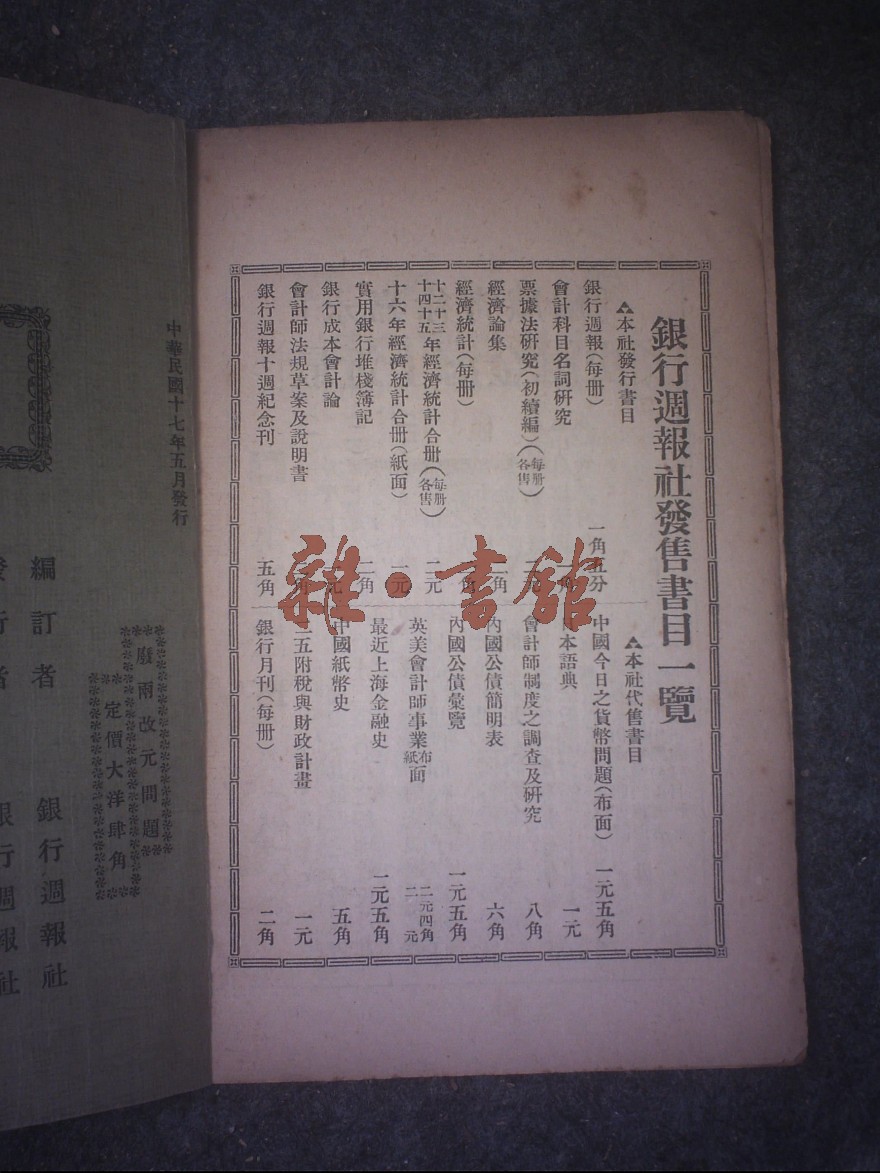 銀行週報社發售書目一覽
本社發行書目
銀行週報(每册) 一角五分
會計科目名詞研究
票據法研究(初續編)(每册各售)
經濟論集
經濟統計(每册)
十二十三十四十五年經濟統計合册(每册各售) 二元
十六年經濟統計合册(紙面) 一元
實用銀行堆棧簿記 二角
銀行成本會計論
會計師法規草案及說明書
銀行週報十週紀念刊 五角
本社代售書目
中國今日之貨幣問題(布面) 一元五角
本語典 一元
會計師制度之調查及研究 八角
內國公債簡明表 六角
內國公債彙覽 一元五角
英美會計師事業布紙面 二元四角 二元
最近上海金融史 一元五角
中國紙幣史 五角
二五附稅與財政計畫 一元
銀行月刊(每册) 二角
雜·書館
中華民國十七年五月發行
廢兩改元問題
定價大洋肆角
編訂者 銀行週報社
發行者 銀行週報社